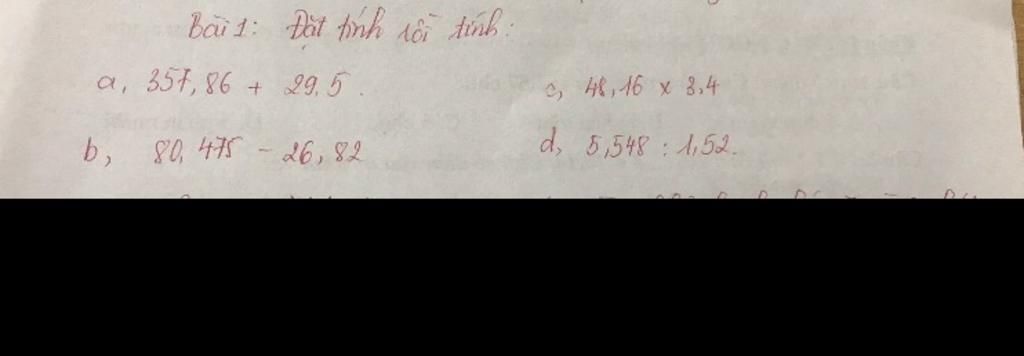 Bài 1: Đặt tính rồi tính:
a, 357,86 + 29,5. c, 48,16 x 3,4
b, 80,475 - 26,82 d, 5,548 : 1,52.